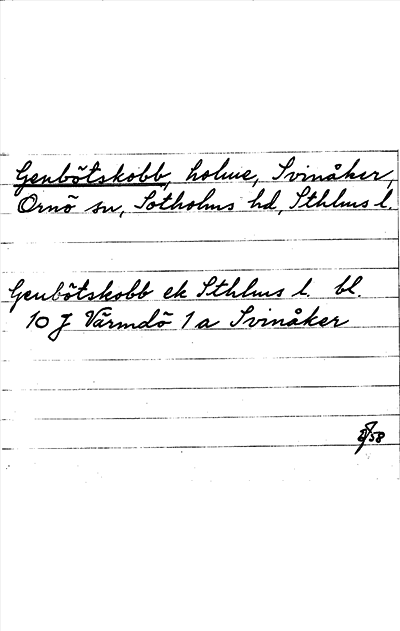 Genbötskobb, holme, Svinåker,
Ornö sn, Sotholms hd, Sthlms l.
Genbötskobb ek Sthlms l. bl.
10 J Värmdö 1 a Svinåker